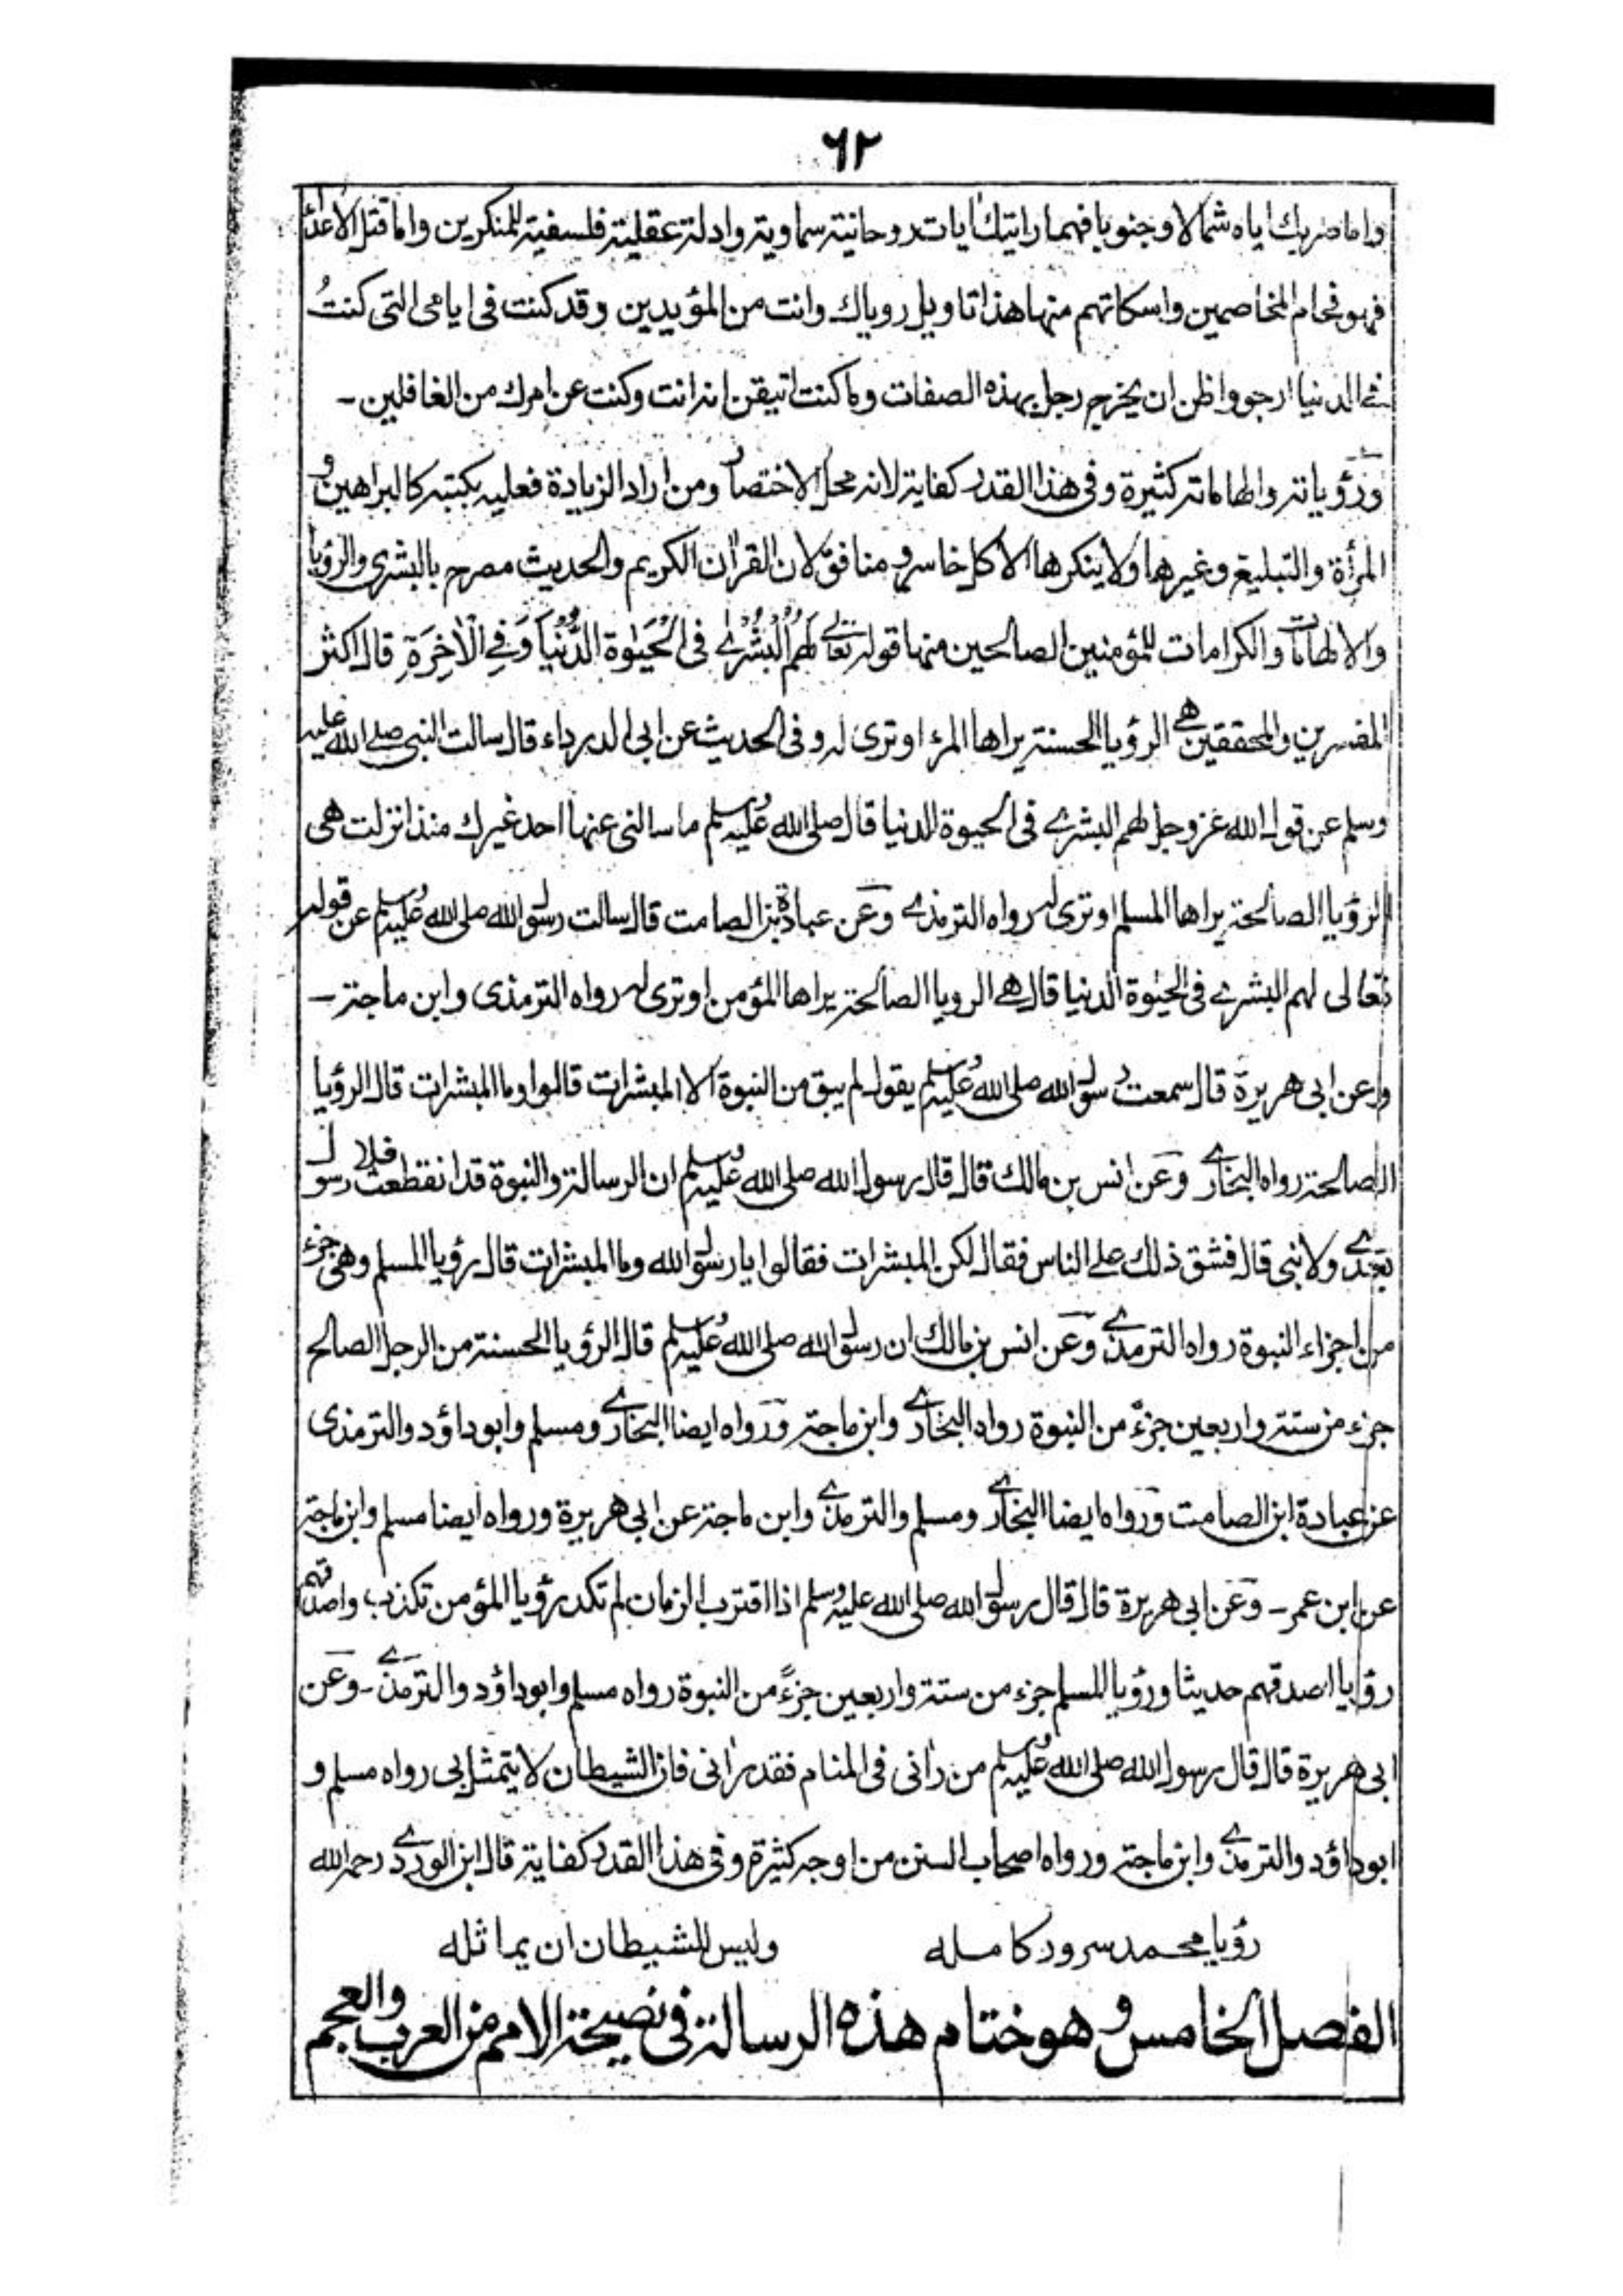 ٦٢
واما ضربك اياه شمالا وجنوبا فهما رايتيك ايات روحانية سماوية وادلة عقلية فلسفية للمنكرين واما قتل الاعداء
فهو فحام المخاصمين واسكاتهم منها هذا تاويل روياك وانت من المؤيدين وقد كنت فى ايامى التى كنتُ
فى الدنيا ارجو واظن ان يخرج رجل بهذه الصفات وما كنت اتيقن انه انت وكنت عن امرك من الغافلين ـ
ورؤياته والهاماته كثيرة وفى هذا القدر كفاية لانه محل الاختصار ومن اراد الزيادة فعليه بكتبه كالبراهين و
المرأة والتبليغ وغيرها ولا ينكرها الا كل خاسر و منافق لان القراٰن الكريم والحديث مصرح بالبشرى والرؤيا
والالهامات والكرامات للمؤمنين الصالحين منها قوله تعالى لَهُمُ الْبُشْرٰے فى الْحَيٰوة الدُّنْيَا وَفِے الْاٰخِرَةِ قال اكثر
المفسرين والمحققين هے الرؤيا الحسنة يراها المرء او ترى له وفى الحديث عن ابى الدرداء قال سالت النبى صلے الله عليه
وسلم عن قول الله عز وجل لهم البشرے فى الحيوة الدنيا قال صلى الله عليه وسلم ما سالنى عنها احد غيرك منذ انزلت هى
الرؤيا الصالحة يراها المسلم او ترى له رواه الترمذے وعن عبادة بن الصامت قال سالت رسول الله صلى الله عليه وسلم عن قوله
تعالى لهم البشرے فى الحيٰوة الدنيا قال هے الرويا الصالحة يراها المؤمن او ترى له رواه الترمذى وابن ماجة ـ
وعن ابى هريرة قال سمعت رسول الله صلى الله عليه وسلم يقول لم يبق من النبوة الا المبشرات قالوا وما المبشرات قال الرؤيا
الصالحة رواه البخارے وعن انس بن مالك قال قال رسول الله صلى الله عليه وسلم ان الرسالة والنبوة قد انقطعت فلا رسول
بعدے ولا نبى قال فشق ذلك على الناس فقال لكن المبشرات فقالوا يا رسول الله وما المبشرات قال رؤيا المسلم وهى جزء
من اجزاء النبوة رواه الترمذے وعن انس بن مالك ان رسول الله صلى الله عليه وسلم قال الرؤيا الحسنة من الرجل الصالح
جزء من ستة واربعين جزءً من النبوة رواه البخارے وابن ماجة ورواه ايضا البخارے ومسلم وابو داؤد والترمذى
عن عبادة ابن الصامت ورواه ايضا البخارے ومسلم والترمذے وابن ماجة عن ابى هريرة ورواه ايضا مسلم وابن ماجة
عن ابن عمر ـ وعن ابى هريرة قال قال رسول الله صلى الله عليه وسلم اذا اقترب الزمان لم تكد رؤيا المؤمن تكذب واصدقهم
رؤيا اصدقهم حديثا ورؤيا المسلم جزء من ستة واربعين جزءً من النبوة رواه مسلم وابو داؤد والترمذے ـ وعن
ابى هريرة قال قال رسول الله صلى الله عليه وسلم من راٰنى فى المنام فقد راٰنى فان الشيطان لا يتمثل بى رواه مسلم و
ابو داؤد والترمذے وابن ماجة ورواه اصحاب السنن من اوجه كثيرة وفى هذا القدر كفاية قال ابن الوردے رحمه الله
رؤيا محمد سرور كامله وليس للشيطان ان يماثله
الفصل الخامس وهو ختام هذه الرسالة فى نصيحة الامم من العرب والعجم